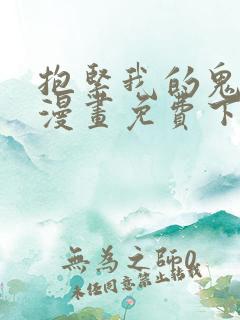 抱緊我的鬼
漫畫免費下
無為之師0
未经同意禁止转载